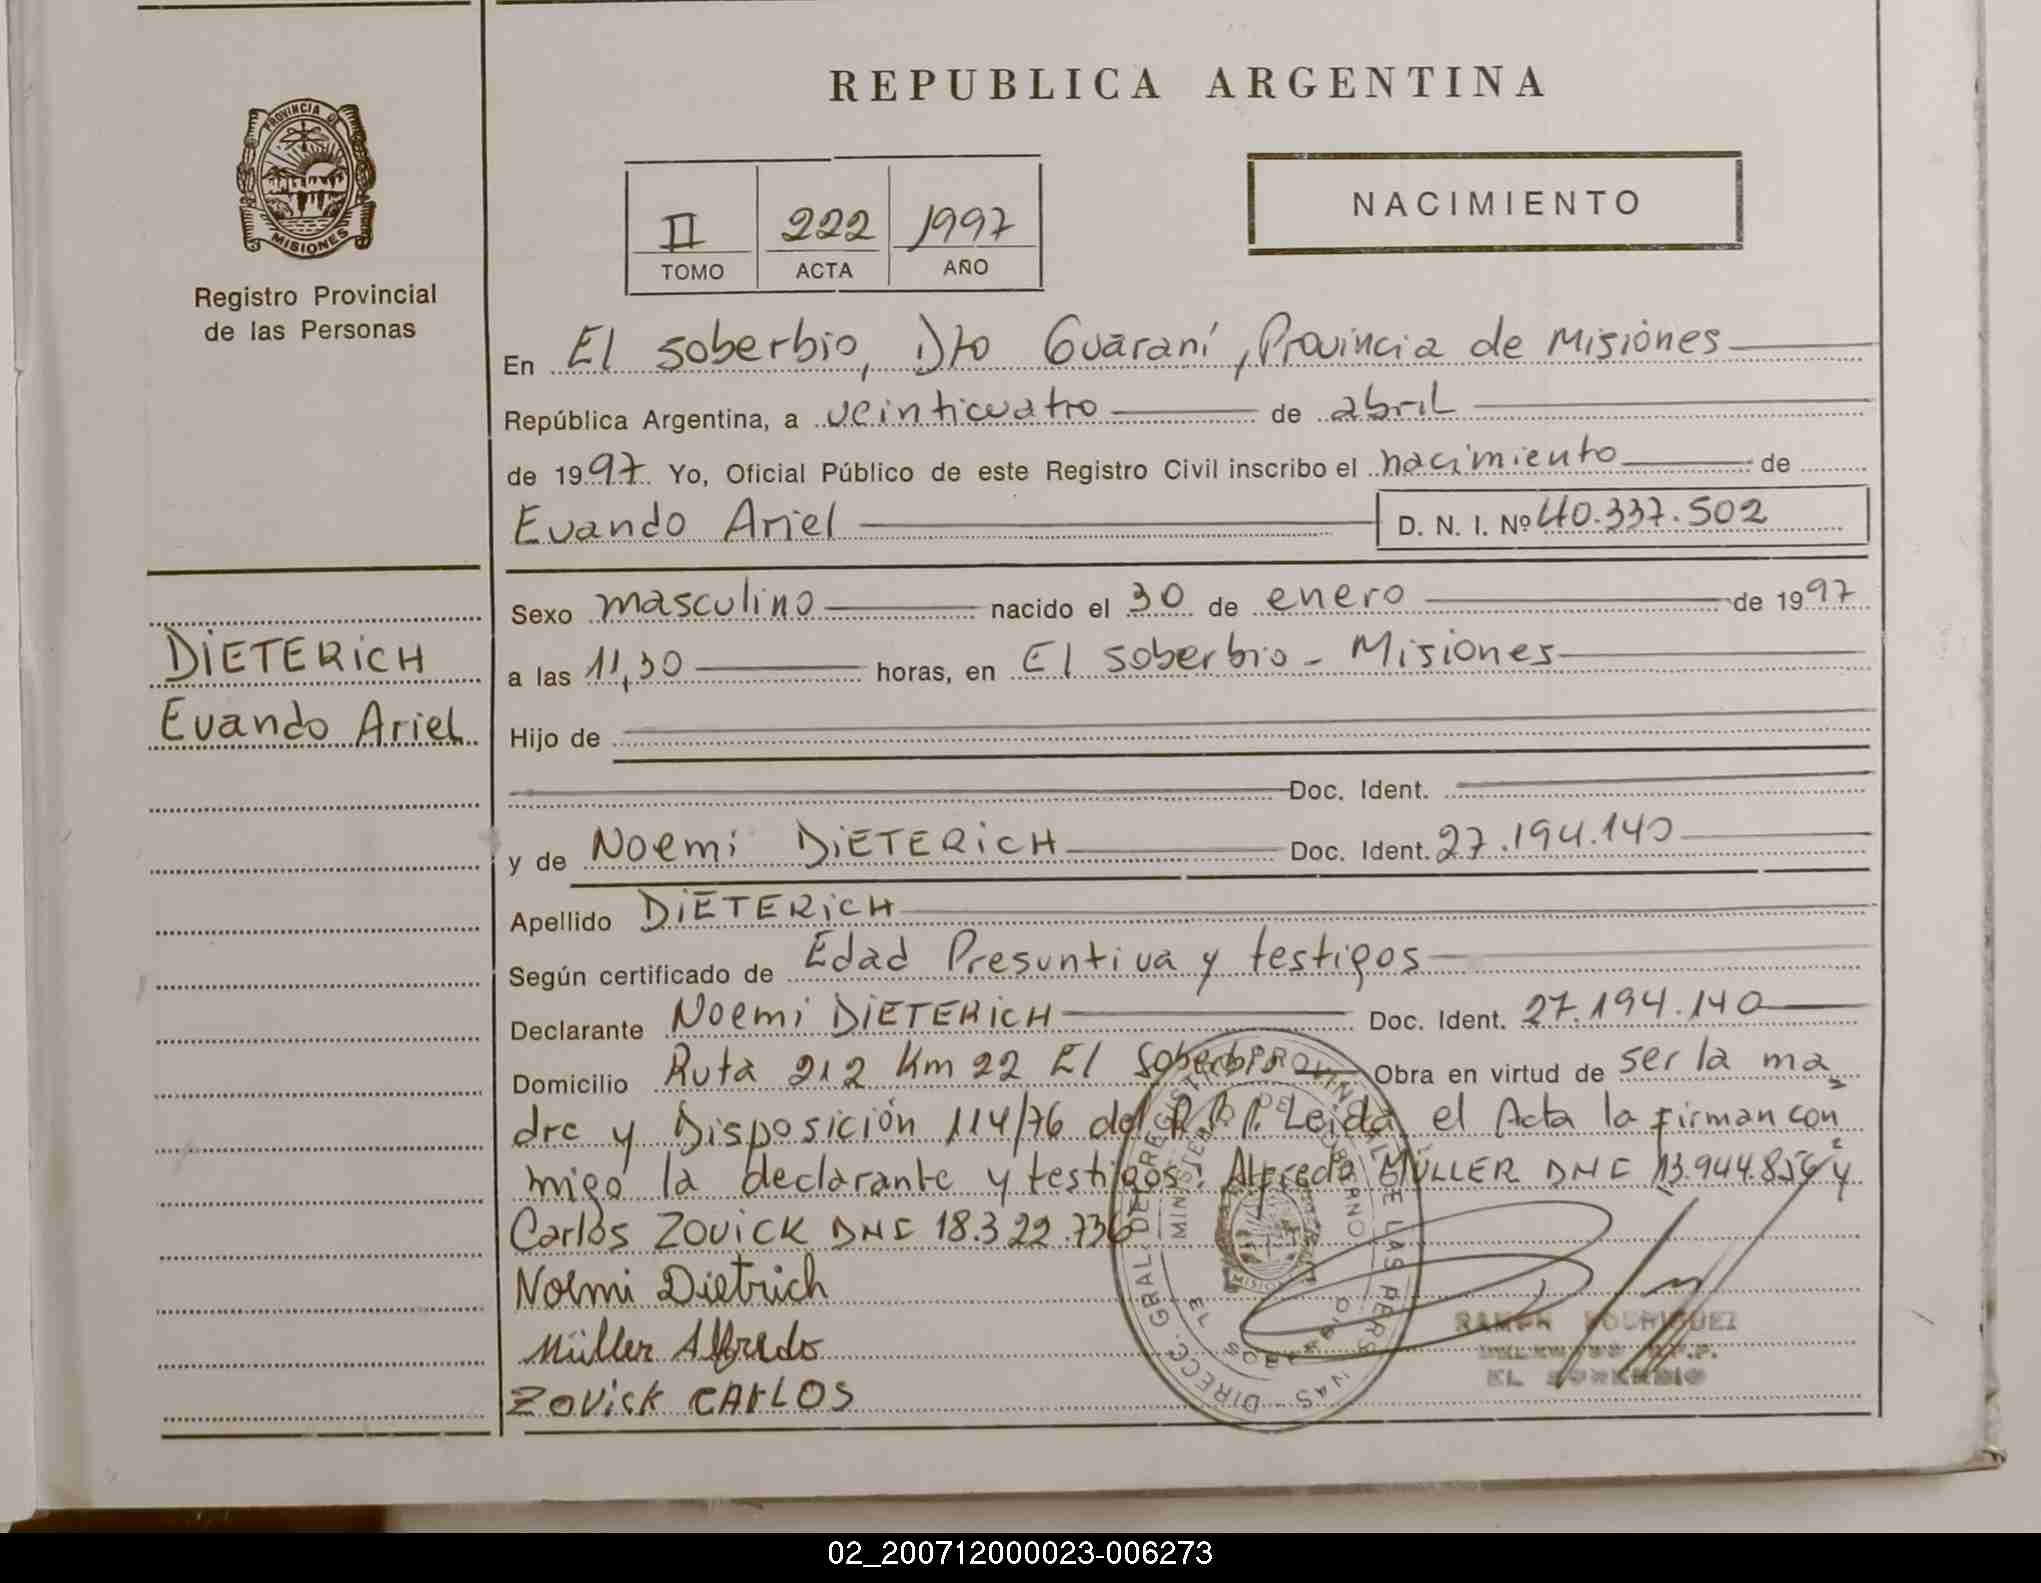 REPUBLICA ARGENTINA
PROVINCIA DE
MISIONES
Registro Provincial
de las Personas
II 222 1997
TOMO ACTA AÑO
NACIMIENTO
En El soberbio, Dto Guaraní, Provincia de Misiones
República Argentina, a veinticuatro de abril
de 1997 Yo, Oficial Público de este Registro Civil inscribo el nacimiento de
Evando Ariel D. N. I. Nº 40.337.502
DIETERICH
Evando Ariel
Sexo masculino nacido el 30 de enero de 1997
a las 11,30 horas, en El soberbio - Misiones
Hijo de
Doc. Ident.
y de Noemi DIETERICH Doc. Ident. 27.194.140
Apellido DIETERICH
Según certificado de Edad Presuntiva y testigos
Declarante Noemi DIETERICH Doc. Ident. 27.194.140
Domicilio Ruta 212 Km 22 El Soberbio Obra en virtud de ser la ma
dre y Disposición 114/76 del R.P.P. Leida el Acta la firman con
migo la declarante y testigos: Alfredo MÜLLER DNI 13.944.854 y
Carlos ZOVICK DNI 18.322.736
Noemi Dietrich
Müller Alfredo
ZOVICK CARLOS
RAMON RODRIGUEZ
EL SOBERBIO
02_200712000023-006273